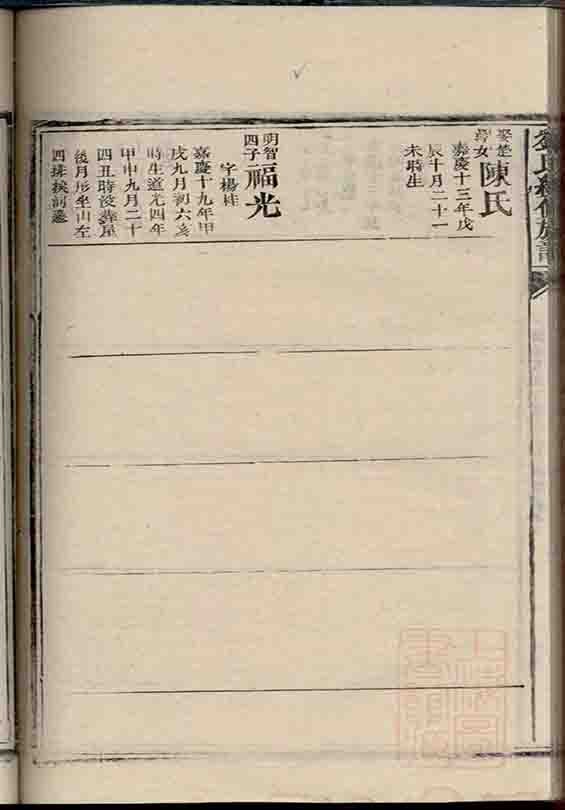 劉氏續修族譜
娶楚
學女
陳氏
嘉慶十三年戊
辰十月二十一
未時生
明智
四子
福光
字楊桂
嘉慶十九年甲
戌九月初六亥
時生道光四年
甲申九月二十
四丑時沒葬屋
後月形坐山左
四排挨祠墓
上海圖書館藏